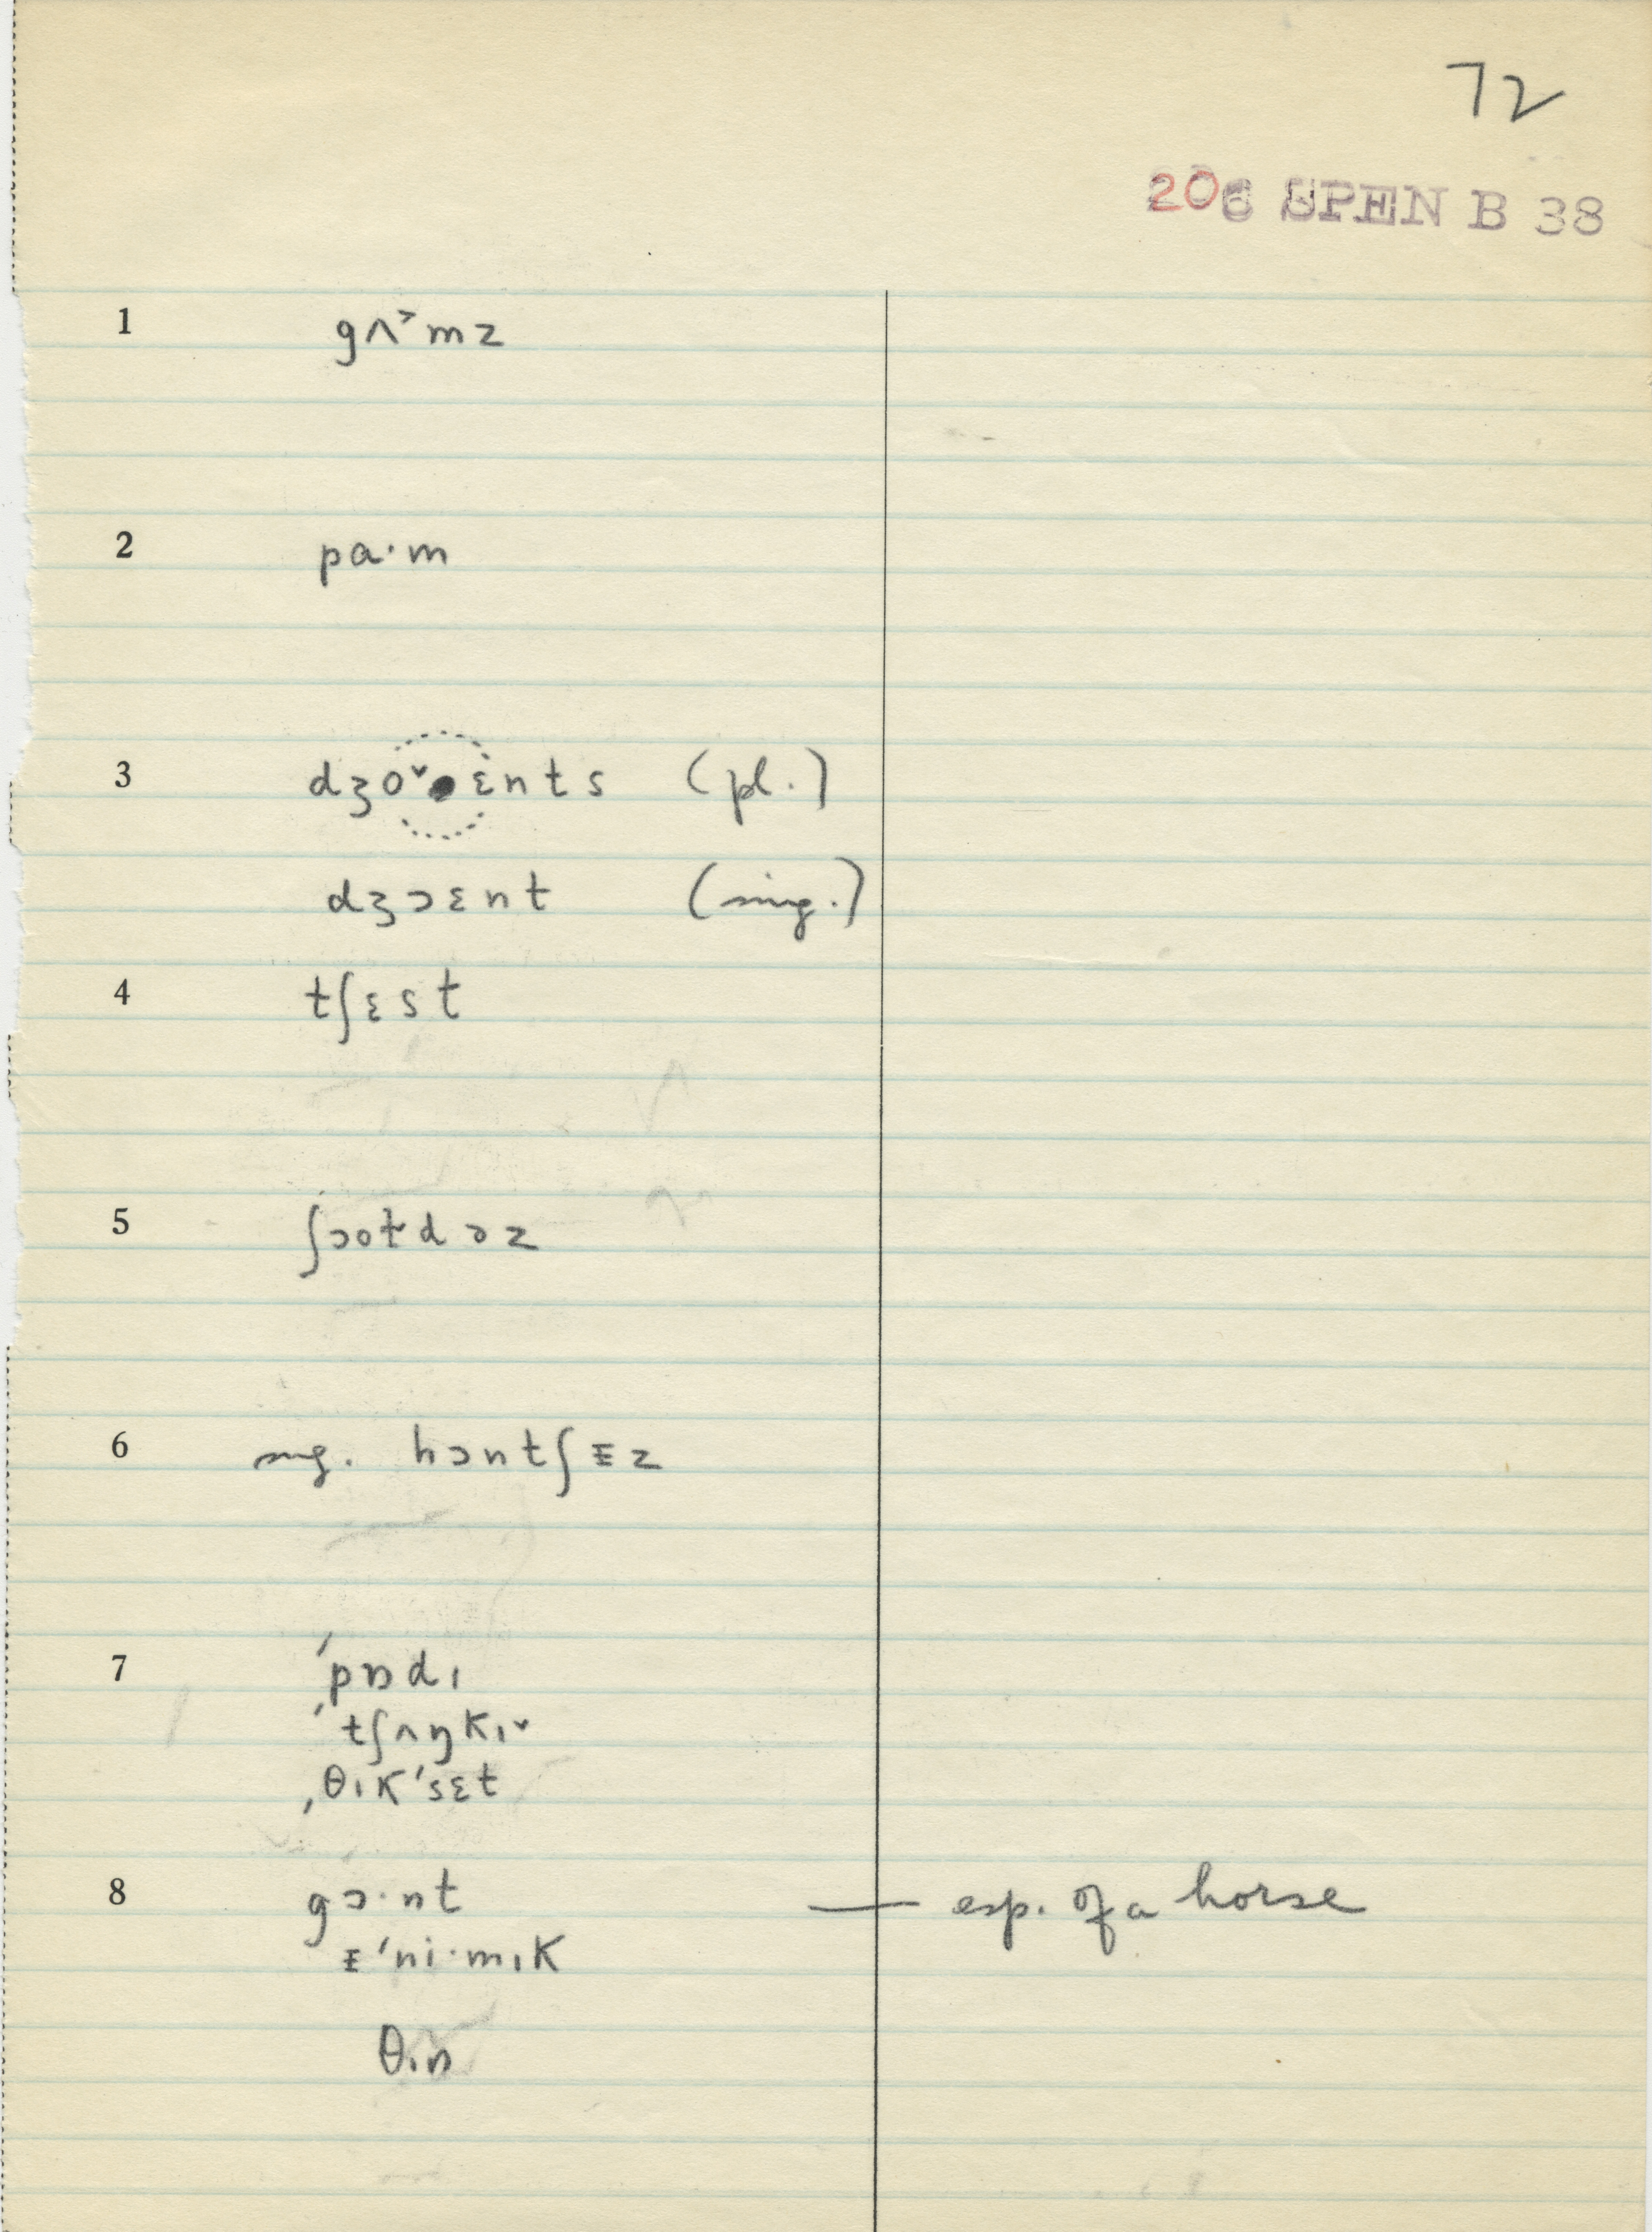 72
206 SPEN B 38
1 gʌ˃mz
2 pa·m
3 dʒo˅ɛnts (pl.)
dʒɔɛnt (sing.)
4 tʃɛst
5 ʃɔoɫdəz
6 sing. hɔntʃᵻz
7 ˈpɒdɪ
ˈtʃʌŋkɪ˅
ˌθɪkˈsɛt
8 gɔ·nt — esp. of a horse
ᵻˈni·mɪk
θɪn